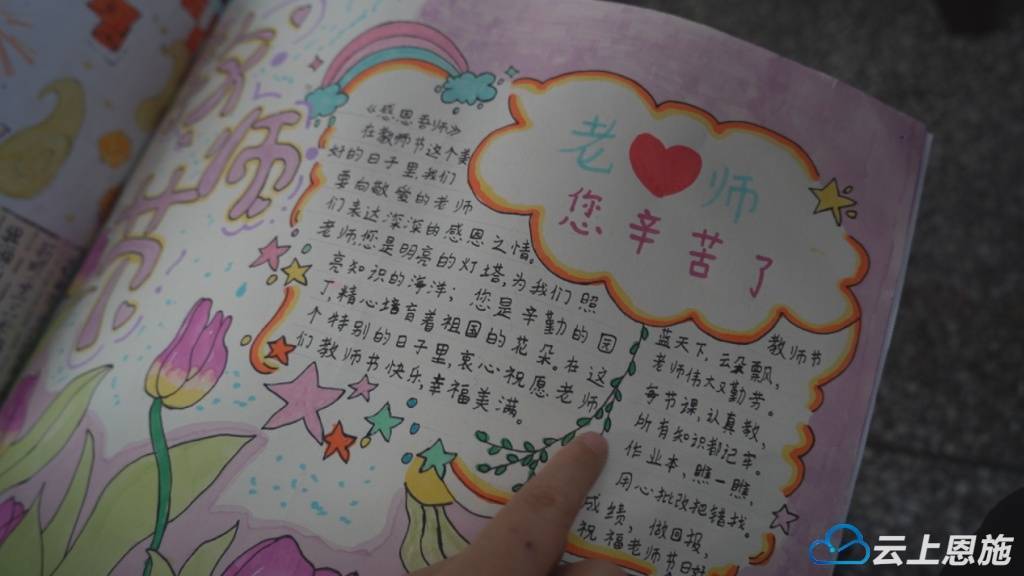 老师
您辛苦了
《感恩老师》
在教师节这个美
好的日子里我们
要向敬爱的老师
们表达深深的感恩之情,
老师您是明亮的灯塔,为我们照
亮知识的海洋; 您是辛勤的园
丁精心培育着祖国的花朵。在这
个特别的日子里,衷心祝愿老师
们教师节快乐,幸福美满。
教师节
蓝天下,云朵飘,
老师伟大又勤劳。
每节课,认真教,
所有知识都记牢。
作业本,瞧一瞧,
用心批改把错找。
成绩,做回报,
祝福老师节日好
云上恩施